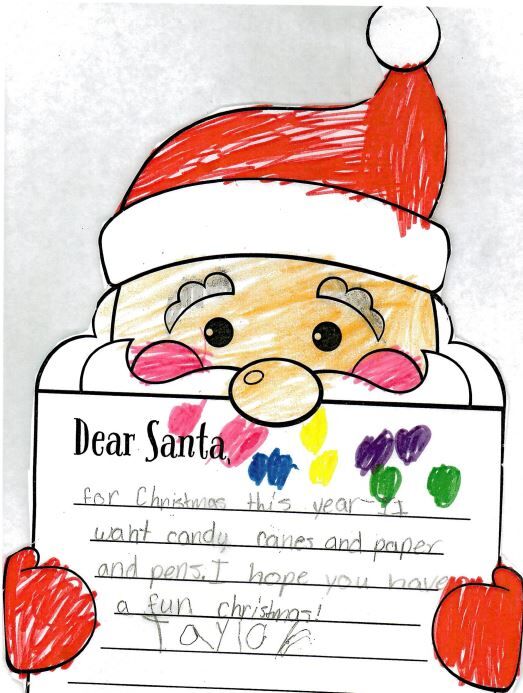 Dear Santa,
for Christmas this year I
want candy canes and paper
and pens. I hope you have
a fun christmas!
Taylor